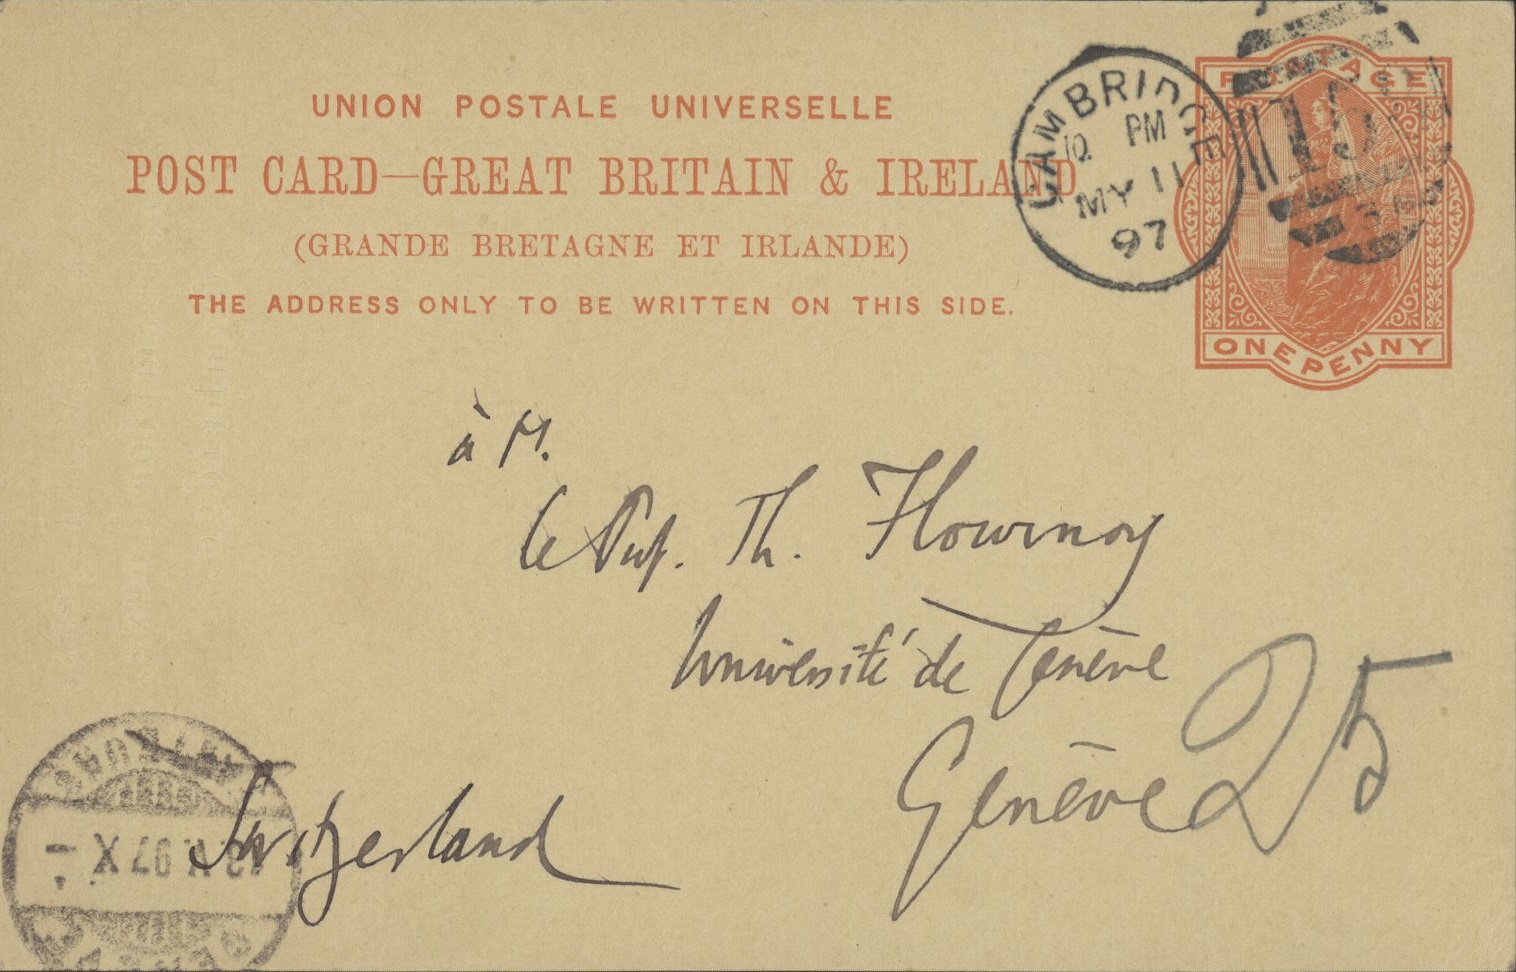 UNION POSTALE UNIVERSELLE
POST CARD—GREAT BRITAIN & IRELAND
(GRANDE BRETAGNE ET IRLANDE)
THE ADDRESS ONLY TO BE WRITTEN ON THIS SIDE.
CAMBRIDGE
10 PM
MY 11
97
POSTAGE
ONE PENNY
à M.
le Prof. Th. Flournoy
Université de Genève
Genève
25
Switzerland
97 X